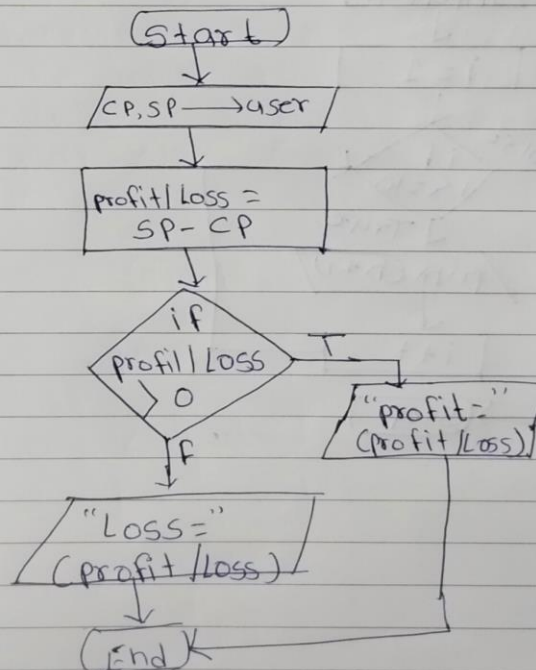 Start
CP, SP → user
profit/Loss =
SP - CP
if
profit/Loss
> 0
T
"profit="
(profit/Loss)
F
"Loss="
(profit/Loss)
End